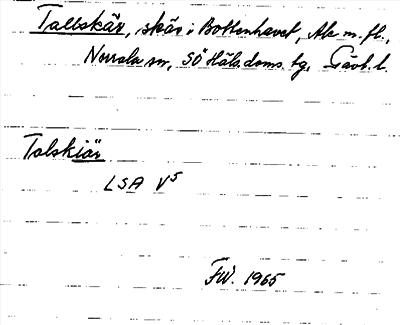 Tallskär, skär i Bottenhavet, Ale m. fl.,
Norrala sn, SÖ Häls. doms. tg, Gävl. l.
Talskiär
LSA V5
FW. 1965